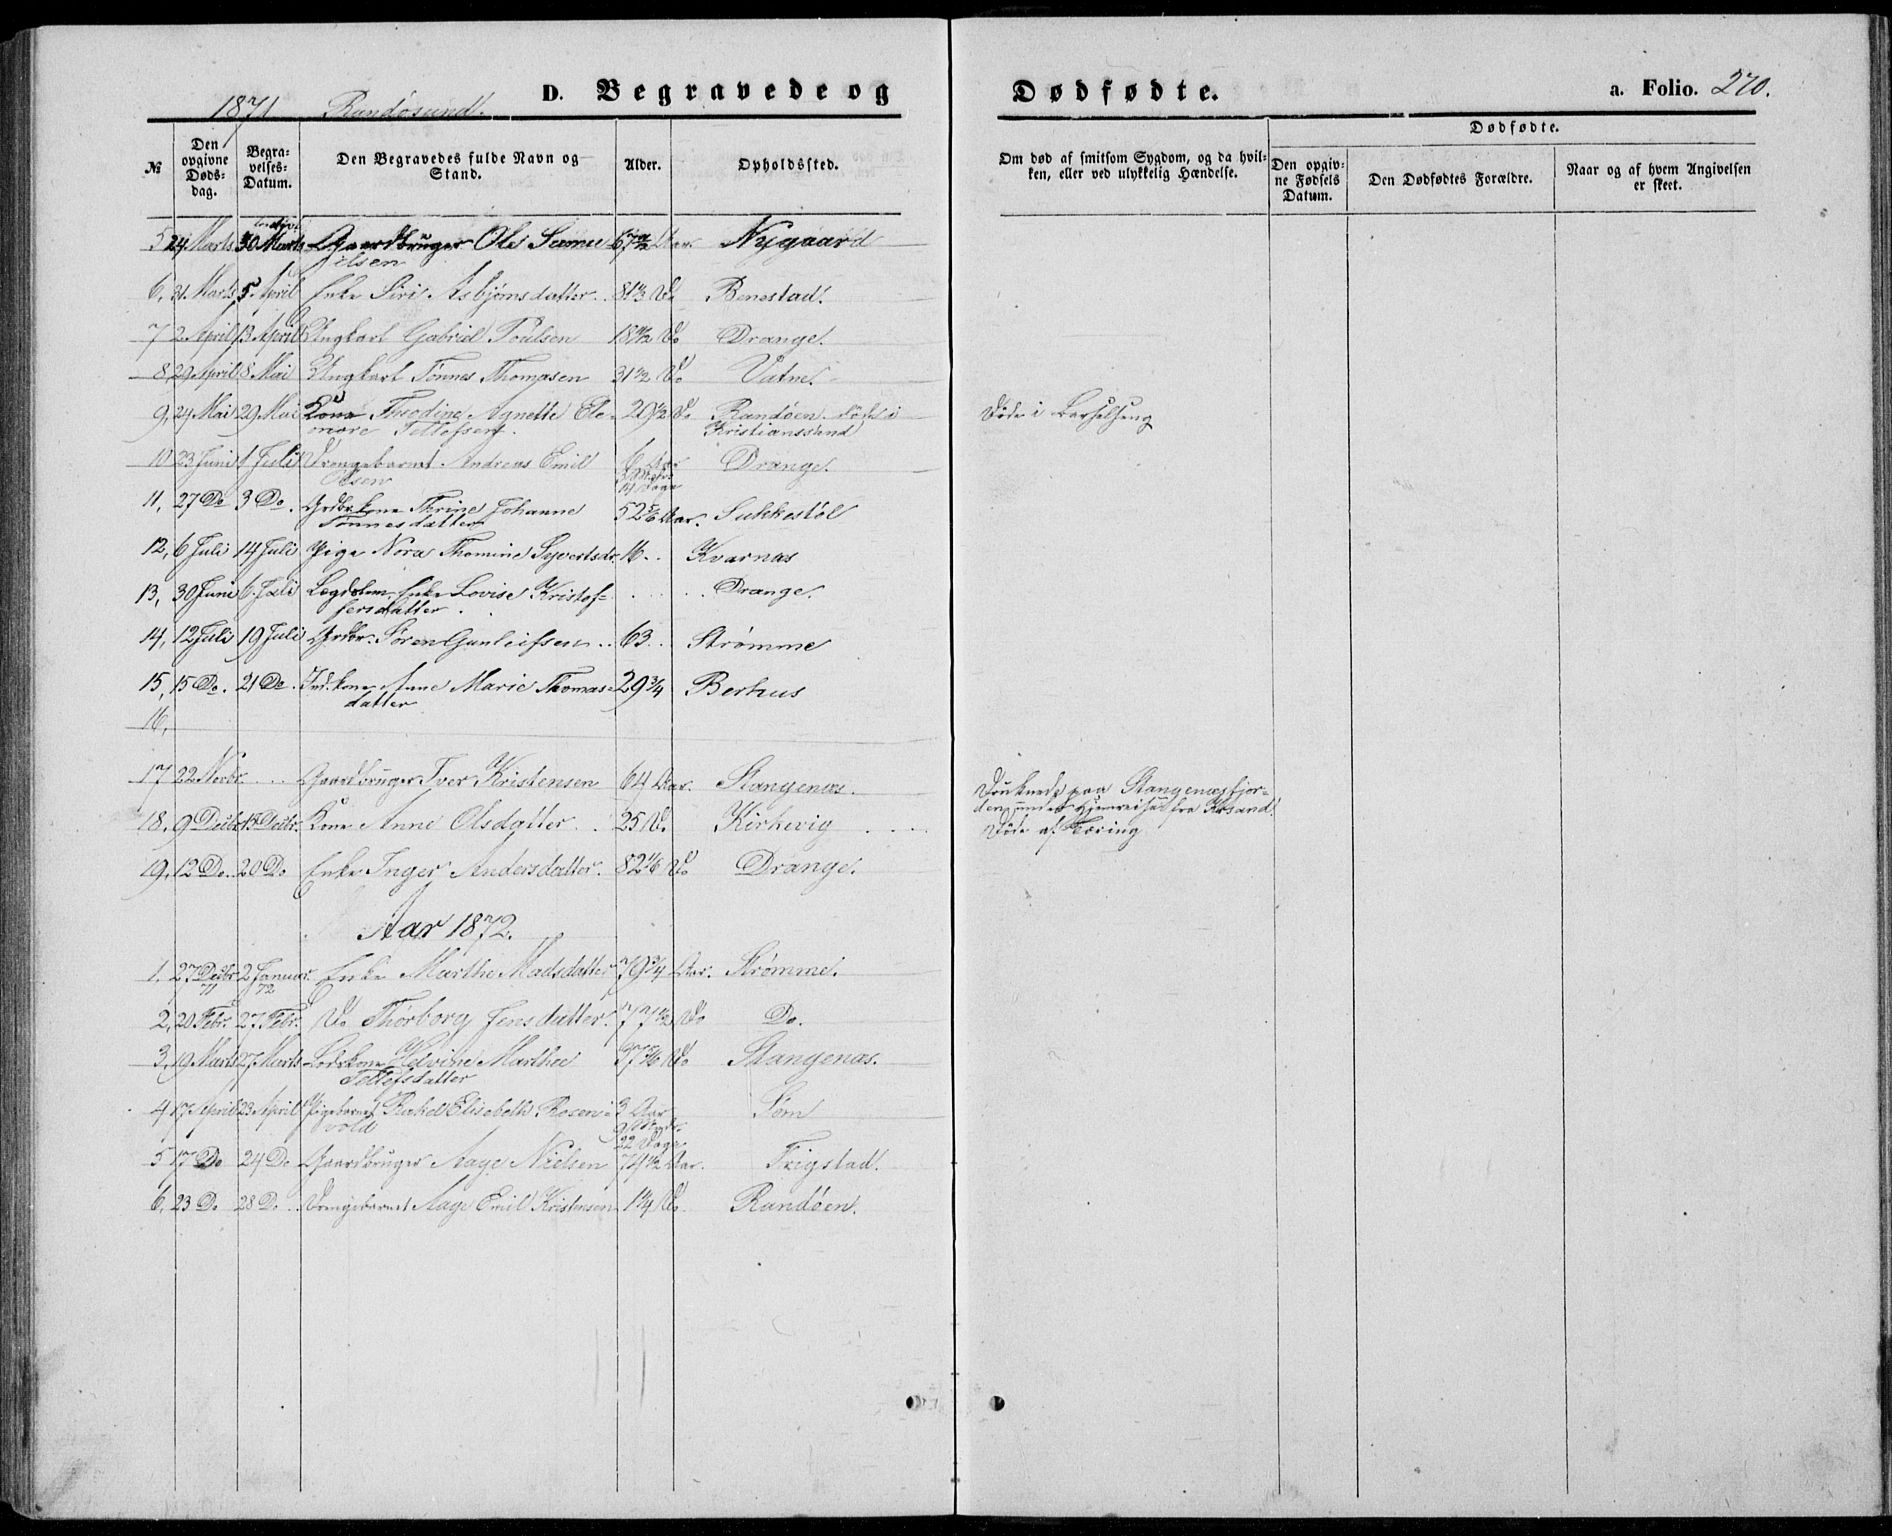 1871 Randösund.
D. Begravede og Dødfødte. a. Folio. 270.
№ Den opgivne Døds-dag. Begra-velses-Datum. Den Begravedes fulde Navn og Stand. Alder. Opholdssted. Om død af smitsom Sygdom, og da hvil-ken, eller ved ulykkelig Hændelse. Dødfødte. Den opgiv-ne Fødsels Datum. Den Dødfødtes Forældre. Naar og af hvem Angivelsen er skeet.
5 24 Marts 30 Marts Gaardbruger Ole Samu- Aar. Nygaard
elsen
6, 31. Marts 5. April Enke Siri Asbjørnsdatter. 81 1/3 Do Benestad.
7 2 April 13 April Ungkarl Gabriel Poulsen Do Drange.
8, 29 April 8 Mai Ungkarl Tönnes Thomasen 31 1/2 Do Vatne.
9, 24 Mai 29 Mai Kone Thodine Agnette Ele- 29 1/2 Do Randöen död i Döde i Barselseng
onore Tellefsen. Kristianssund
10 23 Juni 1 Juli Drengebarnet Andreas Emil 6 Aar Drange.
Olsen 14 Dage
11, 27 Do 3 Do. Grdbr.kone Thrine Johanne 52 5/6 Aar. Sukkestöl
Tønnesdatter
12, 6 Juli 14 Juli Pige Nora Thomine Syvertsdr. 16. Kvarnæs
13, 30 Juni 6 Juli Lægdslem, Enke Lovise Kristof- Drange.
fersdatter.
14, 12 Juli 19 Juli Grdbr. Sören Gunleifsen 63. Strømme
15, 15 Do. 21 Do. Ind.kone Anne Marie Thomas- 29 3/4 Berhus
datter
16,
17 22 Novbr. Gaardbruger Iver Kristensen 64 Aar. Stangenæs. Druknede paa Stangenæsfjor-
den under Hjemreise fra Krsand.
18. 9 Decbr. 15 Decbr. Kone Anne Olsdatter 25 Do Kirkevig Döde af Tæring
19, 12 Do. 20 Do Enke Inger Andersdatter. 82 1/6 Do Drange.
Aar 1872.
1, 27 Decbr 71 2 Januar. 72 Enke Marthe Madsdatter 79 3/4 Aar. Strömme.
2, 20 Febr. 27 Febr. Do Thorborg Jensdatter. 77 1/2 Do Do.
3, 19 Marts 27 Marts Lodskone Helvine Marthea 37 5/6 Do Stangenæs.
Tellefsdatter
4 17 April 23 April Pigebarnet Rakel Elisabeth Rosen- 3 Aar Söm
vold 22 Dage
5 17 Do 24 Do Gaardbruger Aage Nielsen 74 1/2 Aar. Frigstad.
6, 23 Do 28 Do. Drengebarnet Aage Emil Kristensen 1 1/4 Do Randöen.